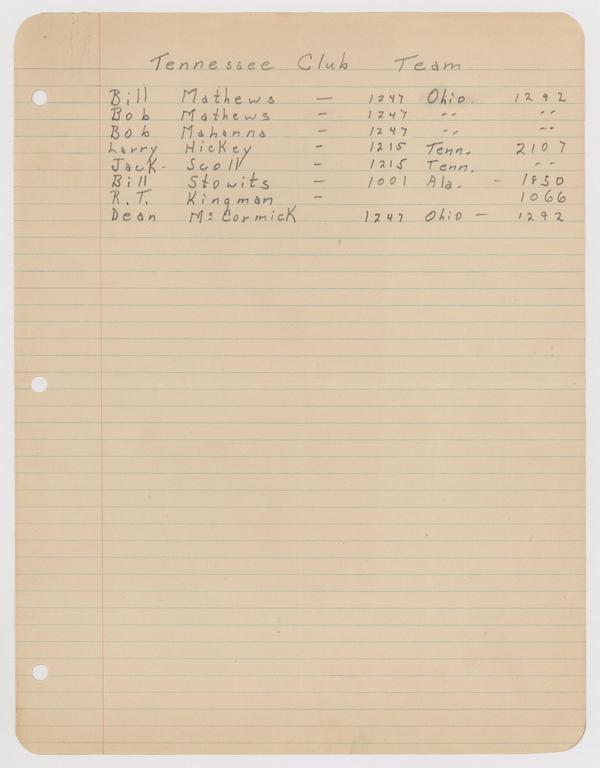 Tennessee Club Team
Bill Mathews – 1247 Ohio 1292
Bob Mathews – 1247 " "
Bob Mahanna – 1247 " "
Larry Hickey – 1215 Tenn. 2107
Jack- Scoll – 1215 Tenn. "
Bill Stowits – 1001 Ala. – 1850
R.T. Kingman – 1066
Dean McCormick 1247 Ohio – 1292